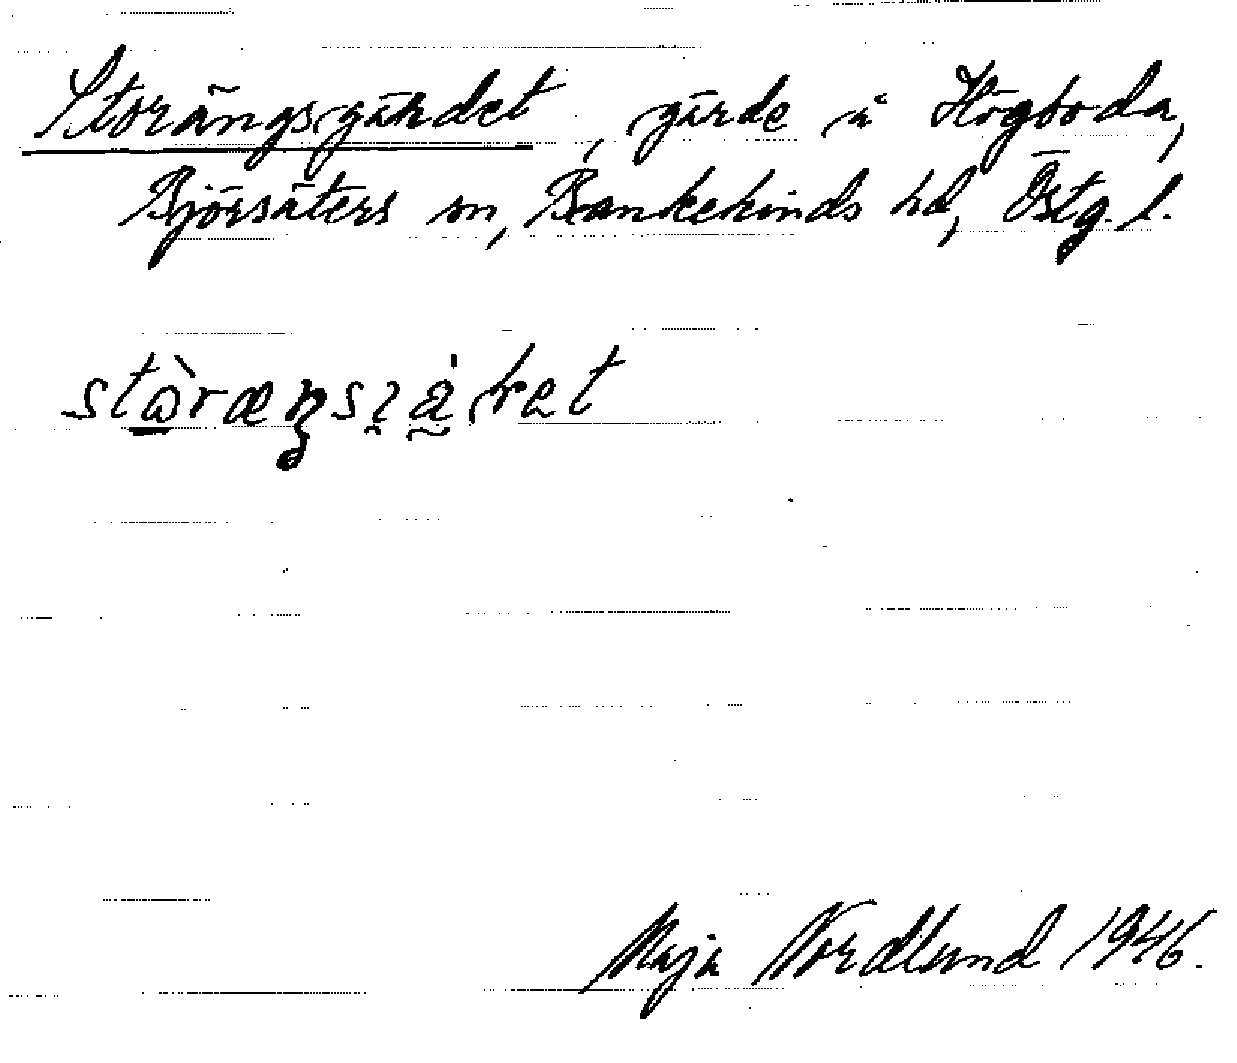 Storängsgärdet, gärde å Högboda,
Björsäters sn, Bankekinds hd, Östg. l.
Maja Nordlund 1946.